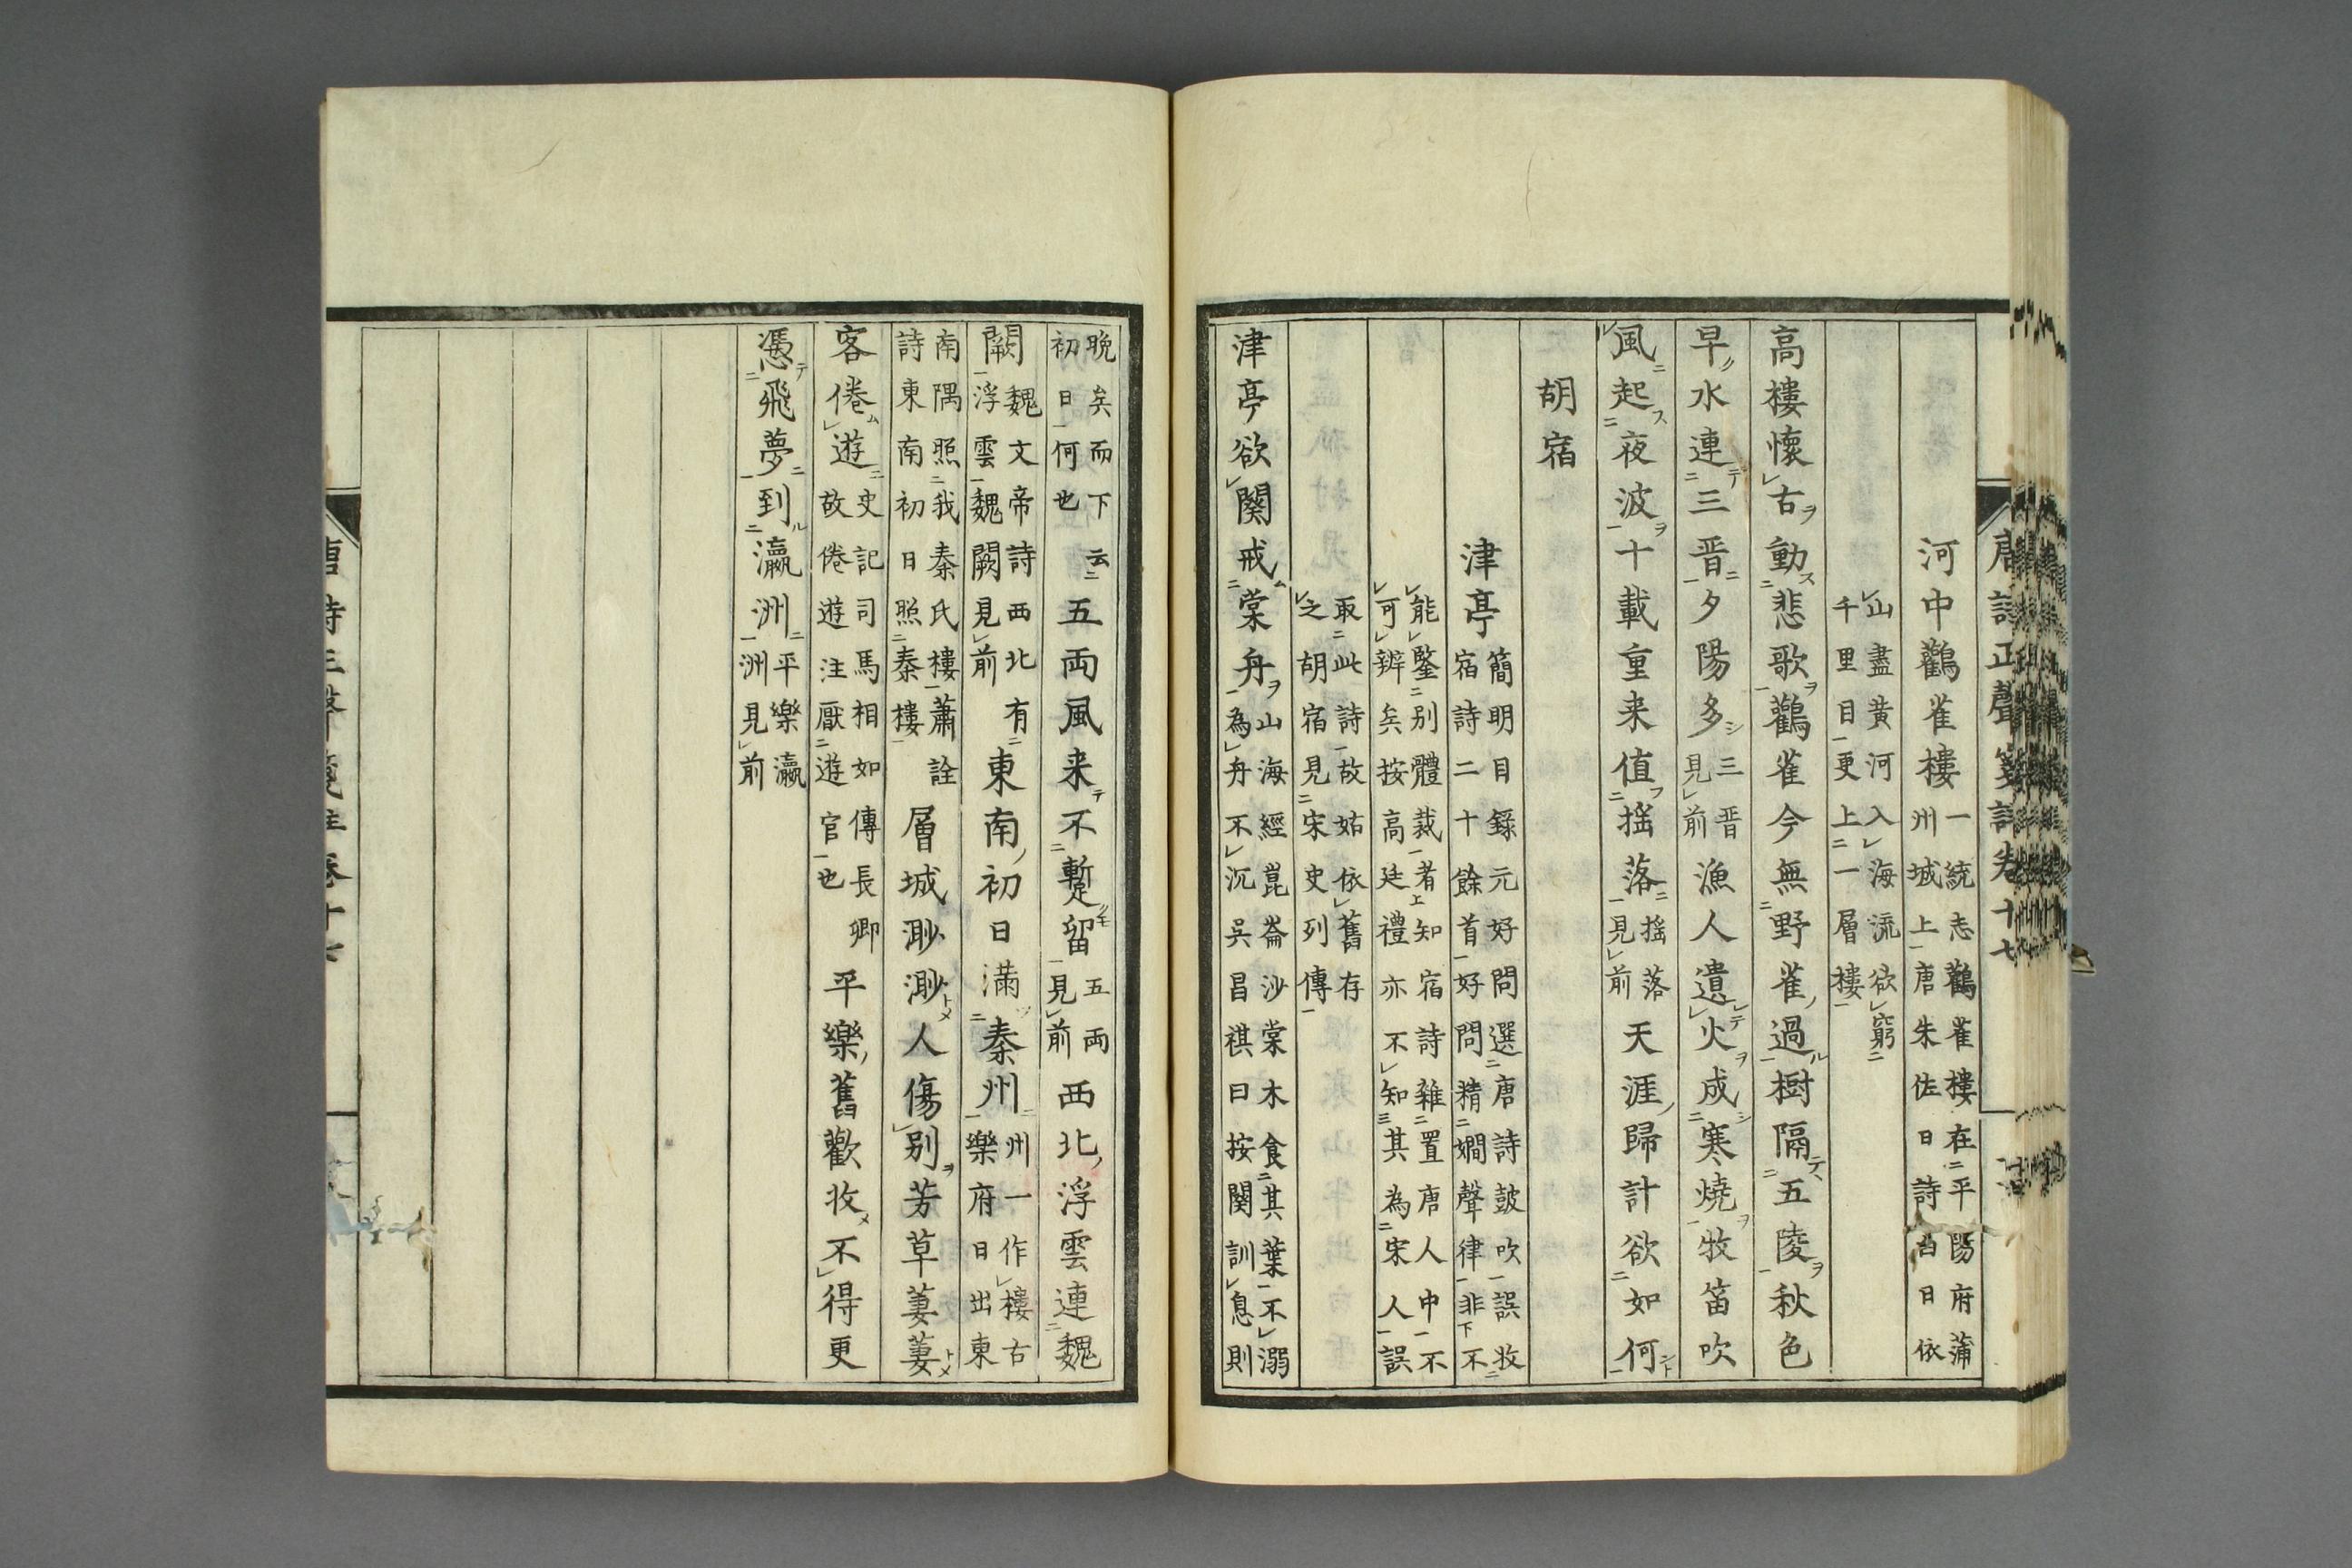 唐詩正聲箋註卷十七
河中鸛雀樓一統志鸛雀樓在平陽府蒲州城上唐朱佐日詩白日依
山盡黃河入海流欲窮千里目更上一層樓
高樓懷古動悲歌鸛雀今無野雀過樹隔五陵秋色
早水連三晋夕陽多三晋見前漁人遺火成寒燒牧笛吹
風起夜波十載重来值搖落搖落見前天涯歸計欲如何
胡宿
津亭簡明目錄元好問選唐詩皷吹誤收宿詩二十餘首好問精嫺聲律非不
能鑒别體裁者知宿詩雜置唐人中不可辨矣按高廷禮亦不知其為宋人誤
取此詩故姑依舊存之胡宿見宋史列傳
津亭欲闋戒棠舟山海經崑崙沙棠木食其葉不溺為舟不沉吳昌祺曰按闋訓息則
晚矣而下云〻初日何也五両風来不蹔留五両見前西北浮雲連魏
闕魏文帝詩西北有浮雲魏闕見前東南初日滿秦州州一作樓古樂府日出東
南隅照我秦氏樓蕭詮詩東南初日照秦樓層城渺渺人傷别芳草萋萋
客倦遊史記司馬相如傳長卿故倦遊注厭遊官也平樂舊歡收不得更
憑飛夢到瀛洲平樂瀛洲見前